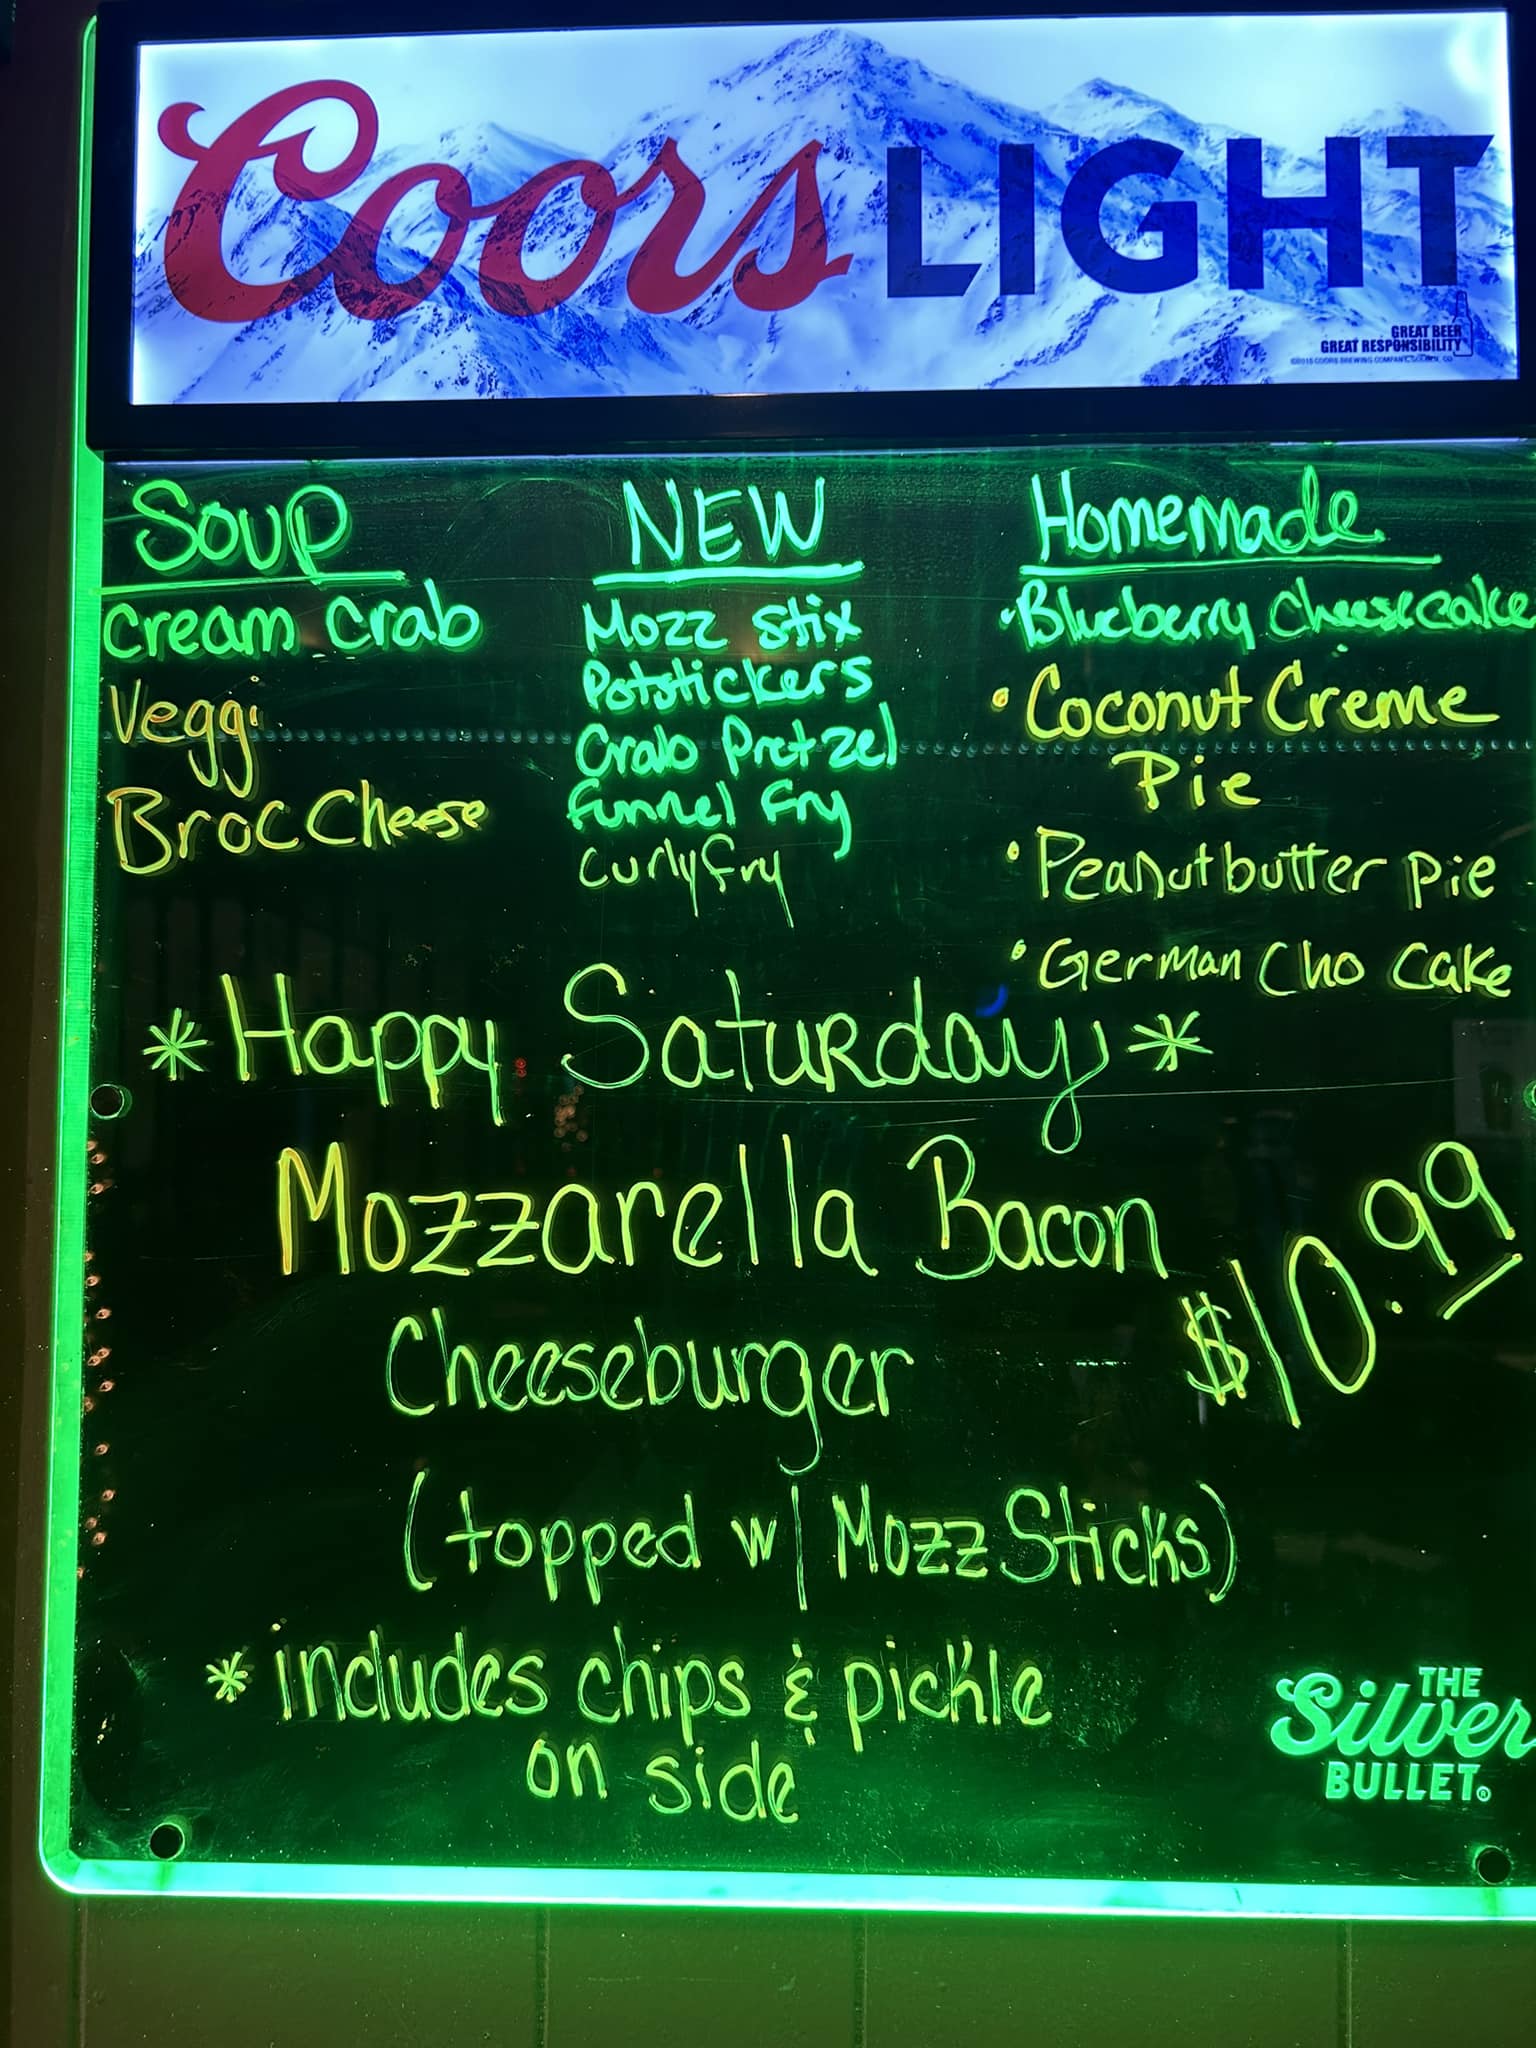 Coors LIGHT
GREAT BEER
GREAT RESPONSIBILITY
Soup
Cream Crab
Veggi
Broc Cheese
NEW
Mozz Stix
Potstickers
Crab Pretzel
Funnel Fry
Curly Fry
Homemade
•Blueberry Cheesecake
•Coconut Creme
Pie
•Peanutbutter pie
•German Cho Cake
*Happy Saturday*
Mozzarella Bacon
Cheeseburger
$10.99
(topped w/ Mozz Sticks)
*includes chips & pickle
on side
THE
Silver
BULLET®